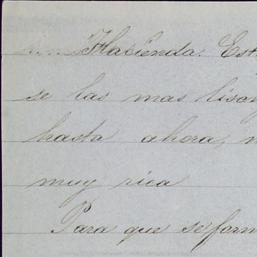 Hacienda. Est
se las mas lison
hasta ahora, 
muy rica
Para que se form